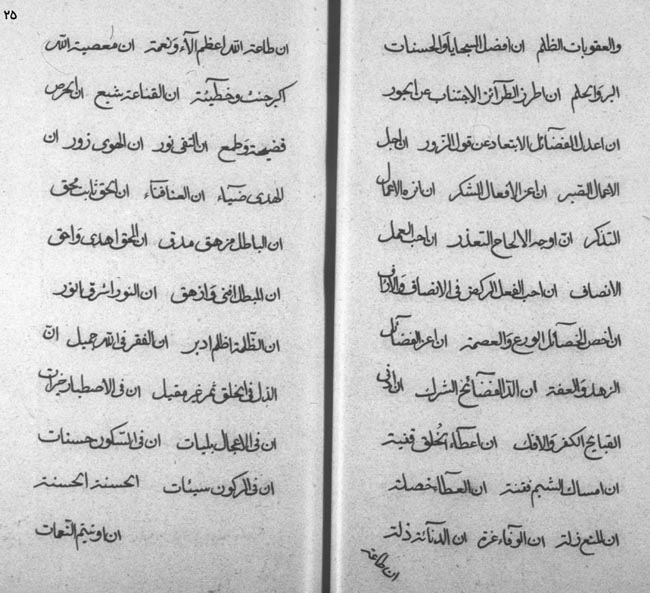 ٢٥
والعقوبات الظلم ان افضل السجايا والحسنات
البر والحلم ان اطرز الطرائز الاجتناب عن الجور
ان اعدل الفضائل الابتعاد عن قول الزور ان اجل
الاعمال الصبر ان اعز الافعال الشكر ان انزه الاعمال
التذكر ان اوجه الالحاح التعذر ان احب العمل
الانصاف ان احب الفعل الركض فى الانصاف
ان اخص الخصائل الورع والعصمة ان اعز الفضائل
الزهد والعفة ان الذ الفضائح الشرك ان ادنى
القبايح الكفر والافك ان اعطاء الخلق قنية
ان امساك الشيم فتنة ان العطاء خصلة
ان المنع ذلة ان الوفاء عزة ان الدنائة ذلة
ان طاعة
ان طاعة الله اعظم الآء ونعمة ان معصية الله
اكبر جنث وخطيئة ان القناعة شبع ان الحرص
فضيحة وطمع ان التقى نور ان الهوى زور ان
الهدى ضياء ان العنا فناء ان الحق ثابت محق
ان الباطل مزهق مدق ان المحق اهدى واحق
ان المبطل افنى وازهق ان النور اشرق بالنور
ان الظلمة اظلم ادبر ان الفقر فى الله جميل ان
الذل فى الخلق ثمر غير مقبل ان فى الاصطبار خيرات
ان فى الاعجال بليات ان فى السكون حسنات
ان فى الركون سيئات الحسنة الحسنة
ان النعمات